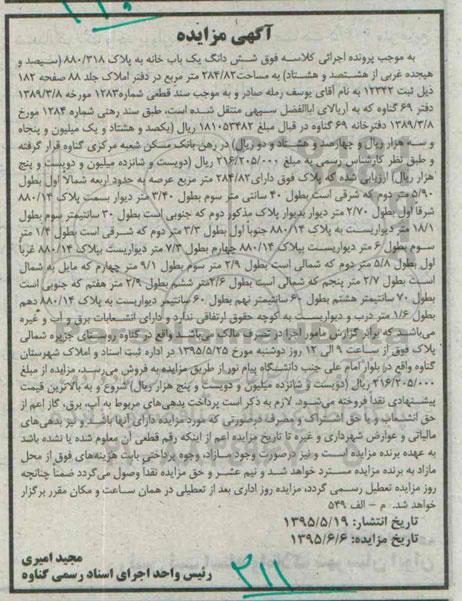 آگهی مزایده
به موجب پرونده اجرائی کلاسه فوق شش دانگ یک باب خانه به پلاک ۸۸۰/۳۱۸ (سیصد و
هیجده غربی از هشتصد و هشتاد) به مساحت۲۸۴/۸۲ متر مربع در دفتر املاک جلد ۸۸ صفحه ۱۸۲
ذیل ثبت ۱۲۳۴۲ به نام آقای یوسف رمله صادر و به موجب سند قطعی شماره۱۲۸۳ مورخه ۱۳۸۹/۳/۸
دفتر ۶۹ گناوه که به آریالای اباالفضل سپهی منتقل شده است، طبق سند رهنی شماره ۱۲۸۴ مورخ
۱۳۸۹/۳/۸ دفترخانه ۶۹ گناوه در قبال مبلغ ۱۸۱۰۵۳۴۸۲ ریال (یکصد و هشتاد و یک میلیون و پنجاه
و سه هزار ریال و چهارصد و هشتاد و دو ریال) در رهن بانک مسکن شعبه مرکزی گناوه قرار گرفته
و طبق نظر کارشناس رسمی به مبلغ ۲۱۶/۲۰۵/۰۰۰ ریال (دویست و شانزده میلیون و دویست و پنج
هزار ریال) ارزیابی شده که پلاک فوق دارای۲۸۴/۸۲ متر مربع عرصه به حدود اربعه شمالا اول بطول
۵/۹۰ متر دوم که شرقی است بطول ۴۰ سانتی متر سوم بطول ۳/۴۰ متر دیوار بسمت پلاک ۸۸۰/۱۴
شرقا اول بطول ۲/۷۰ متر دیوار بدیوار پلاک مذکور دوم که جنوبی است بطول ۳۰ سانتیمتر سوم بطول
۱۸/۱ متر دیواریست به پلاک ۸۸۰/۱۴ جنوبا اول بطول ۳/۳ متر دوم که شرقی است بطول ۱/۴ متر
سوم بطول ۶ متر دیواریست بپلاک ۸۸۰/۱۴ چهارم بطول ۷/۳ متر دیواریست بپلاک ۸۸۰/۱۴ غربا
اول بطول ۵/۸ متر دوم که شمالی است بطول ۲/۹ متر سوم بطول ۹/۱ متر چهارم که مایل به شمال
است بطول ۲/۷ متر پنجم که شمالی است بطول ۲/۶متر ششم بطول ۲/۹ متر هفتم که جنوبی است
بطول ۷۰ سانتیمتر هشتم بطول ۶۰ سانتیمتر نهم بطول ۶۰ سانتیمتر دیواریست به پلاک ۸۸۰/۱۴ دهم
بطول ۱/۶ متر درب و دیواریست به کوچه حقوق ارتفاقی ندارد و دارای انشعابات برق و آب و غیره
می‌باشند که برابر گزارش مامور اجرا در تصرف مالک می‌باشد واقع در گناوه روستای جزیره شمالی
پلاک فوق از ساعت ۹ الی ۱۲ روز دوشنبه مورخ ۱۳۹۵/۵/۲۵ در اداره ثبت اسناد و املاک شهرستان
گناوه واقع در بلوار امام علی جنب دانشگاه پیام نور از طریق مزایده به فروش می‌رسد، مزایده از مبلغ
۲۱۶/۲۰۵/۰۰۰ ریال (دویست و شانزده میلیون و دویست و پنج هزار ریال) شروع و به بالاترین قیمت
پیشنهادی نقدا فروخته می‌شود، لازم به ذکر است پرداخت بدهی‌های مربوط به آب، برق، گاز اعم از
حق انشعاب و یا حق اشتراک و مصرف درصورتی که مورد مزایده دارای آنها باشد و نیز بدهی‌های
مالیاتی و عوارض شهرداری و غیره تا تاریخ مزایده اعم از اینکه رقم قطعی آن معلوم شده یا نشده باشد
به عهده برنده مزایده است و نیز درصورت وجود مازاد، وجوه پرداختی بابت هزینه‌های فوق از محل
مازاد به برنده مزایده مسترد خواهد شد و نیم عشر و حق مزایده نقدا وصول می‌گردد ضمنا چنانچه
روز مزایده تعطیل رسمی گردد، مزایده روز اداری بعد از تعطیلی در همان ساعت و مکان مقرر برگزار
خواهد شد. م - الف ۵۴۹
تاریخ انتشار: ۱۳۹۵/۵/۱۹
تاریخ مزایده: ۱۳۹۵/۶/۶
مجید امیری
رئیس واحد اجرای اسناد رسمی گناوه
۳۱۱